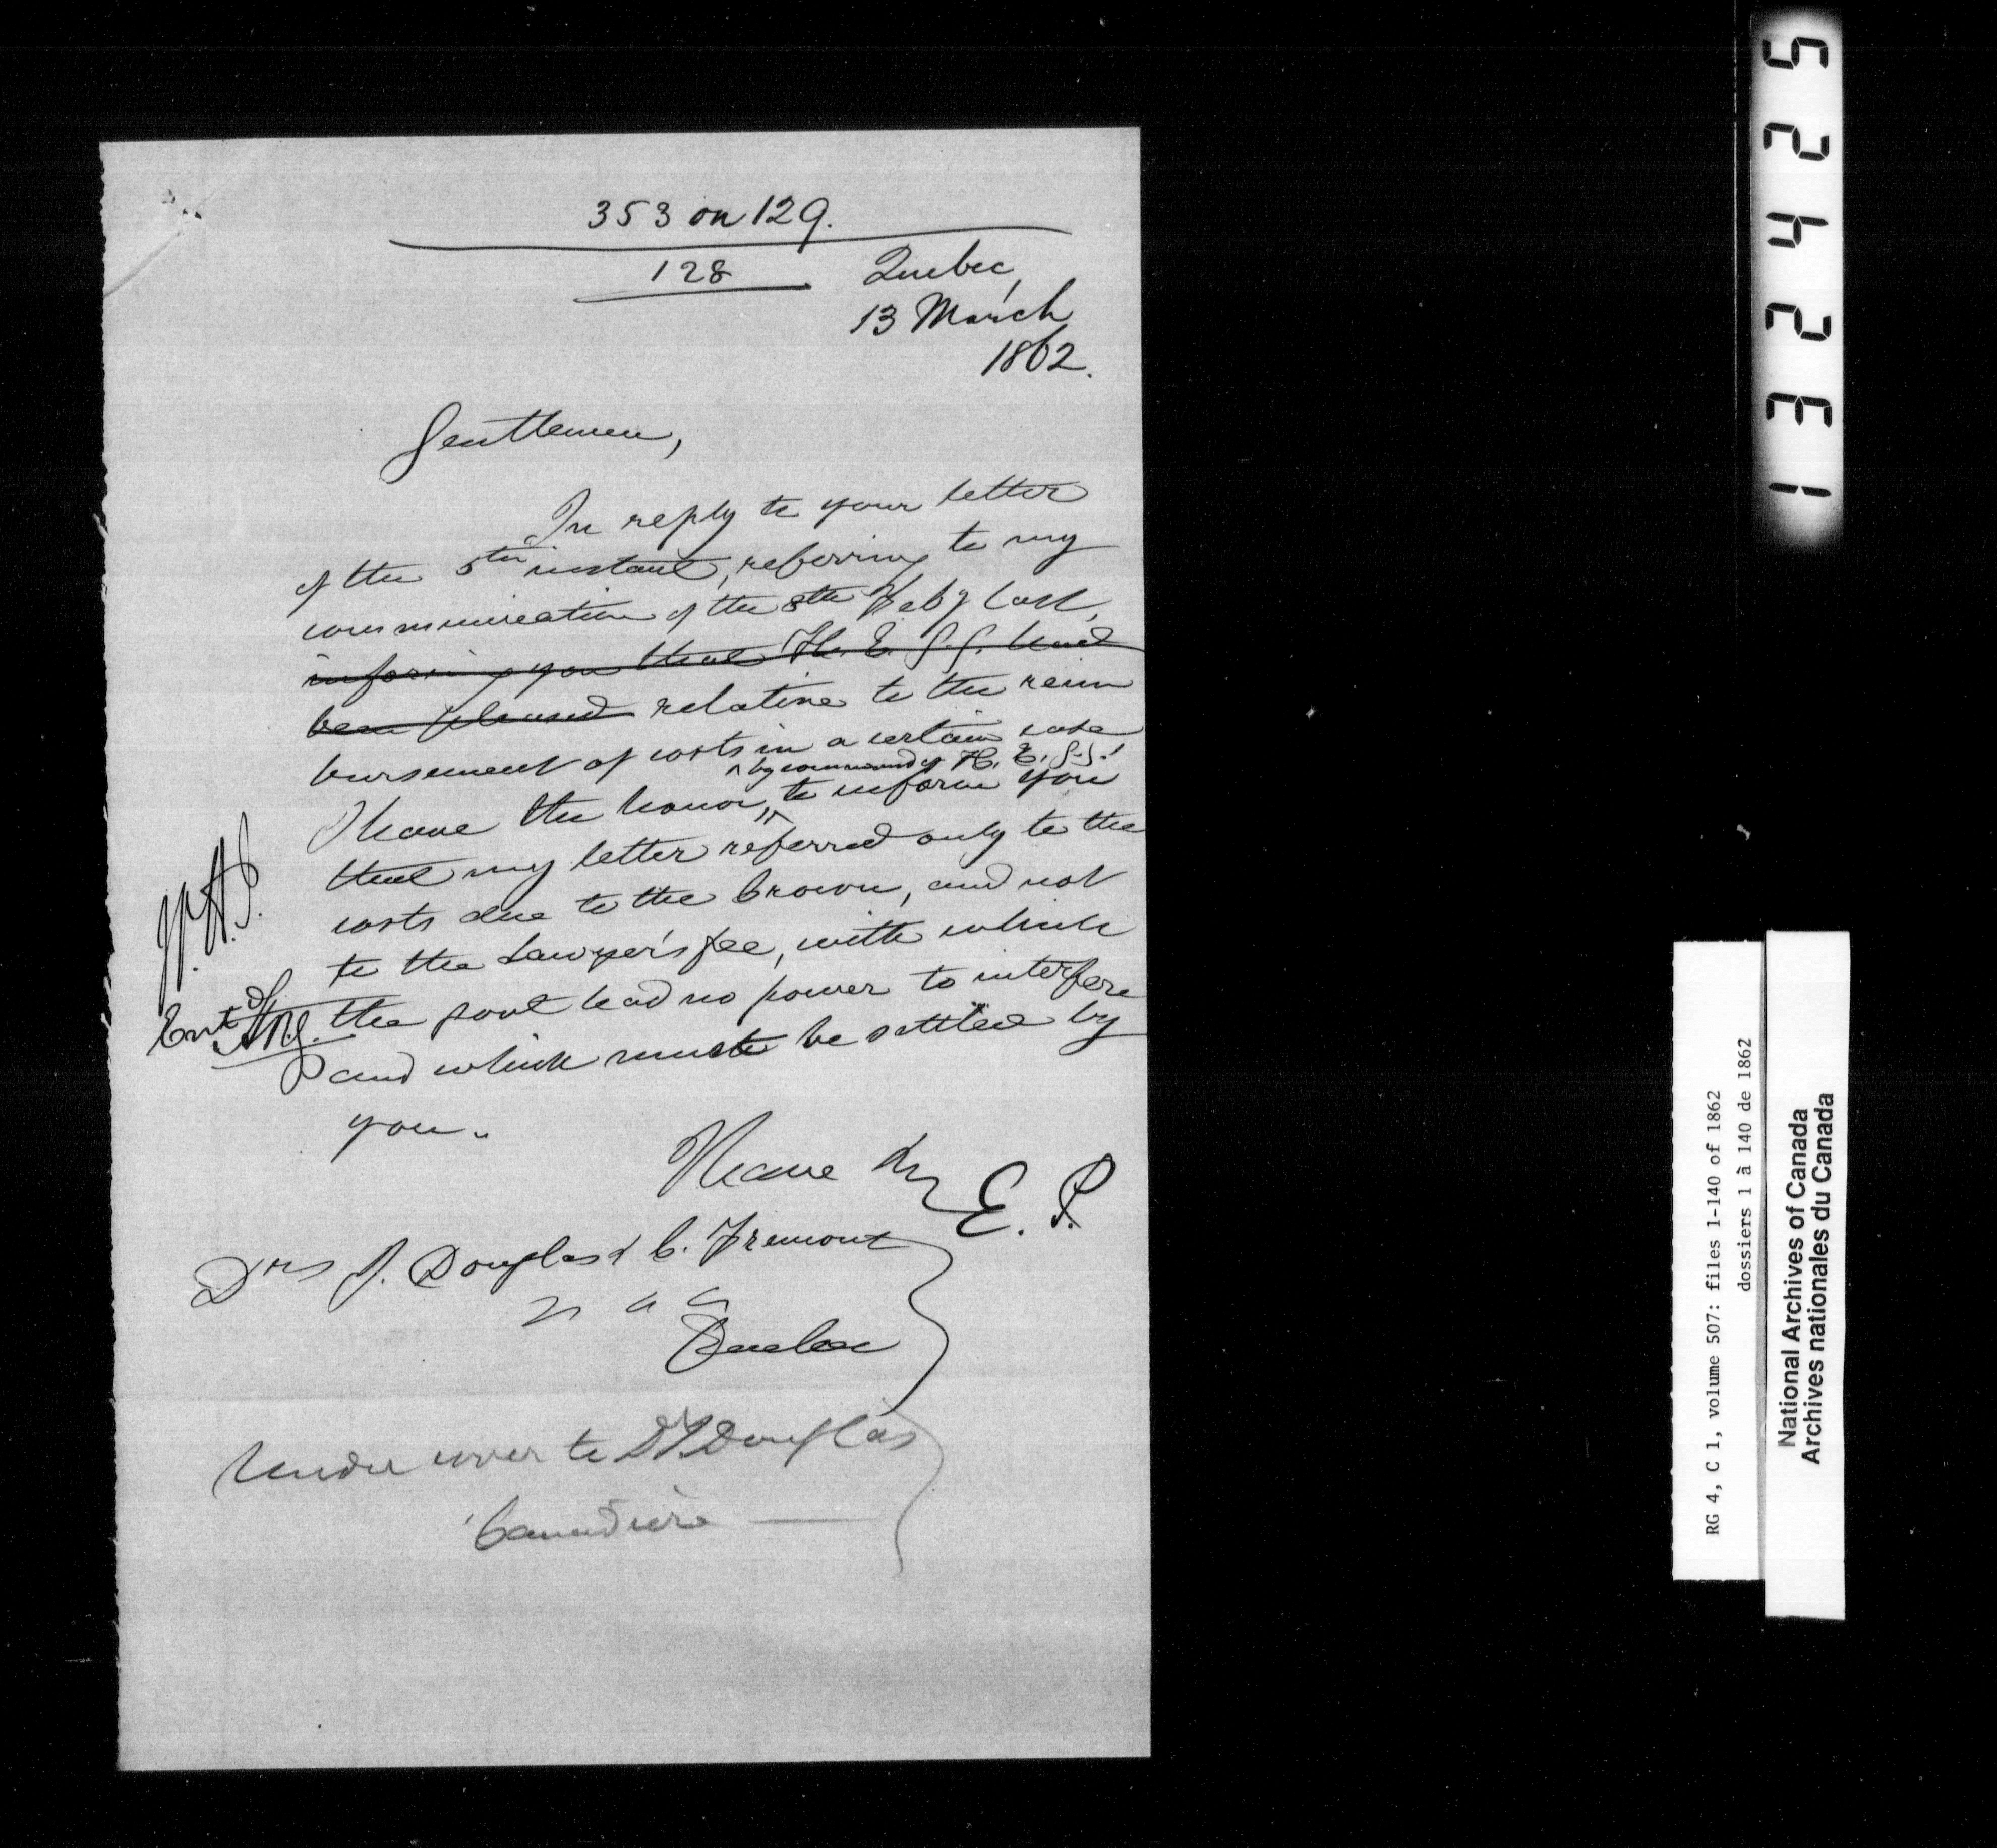 353 on 129.
128
Quebec,
13 March
1862.
Gentlemen,
In reply to your letter
of the 5th instant, referring to my
communication of the 8th Feby last,
informing you that H. E. G. G. had
been pleased relative to the reim
bursement of costs in a certain case
by command of H. E. G. G.
I have the honor, to inform you
that my letter referred only to the
costs due to the Crown, and not
to the Lawyer's fee, with which
the Govt had no power to interfere
and which must be settled by
you.
Entd
I have &c
E. P.
Drs J. Douglas & C. Fremont
Quebec
Under cover to Dr Douglas
Canardière
132425
RG 4, C 1, volume 507: files 1-140 of 1862
dossiers 1 à 140 de 1862
National Archives of Canada
Archives nationales du Canada